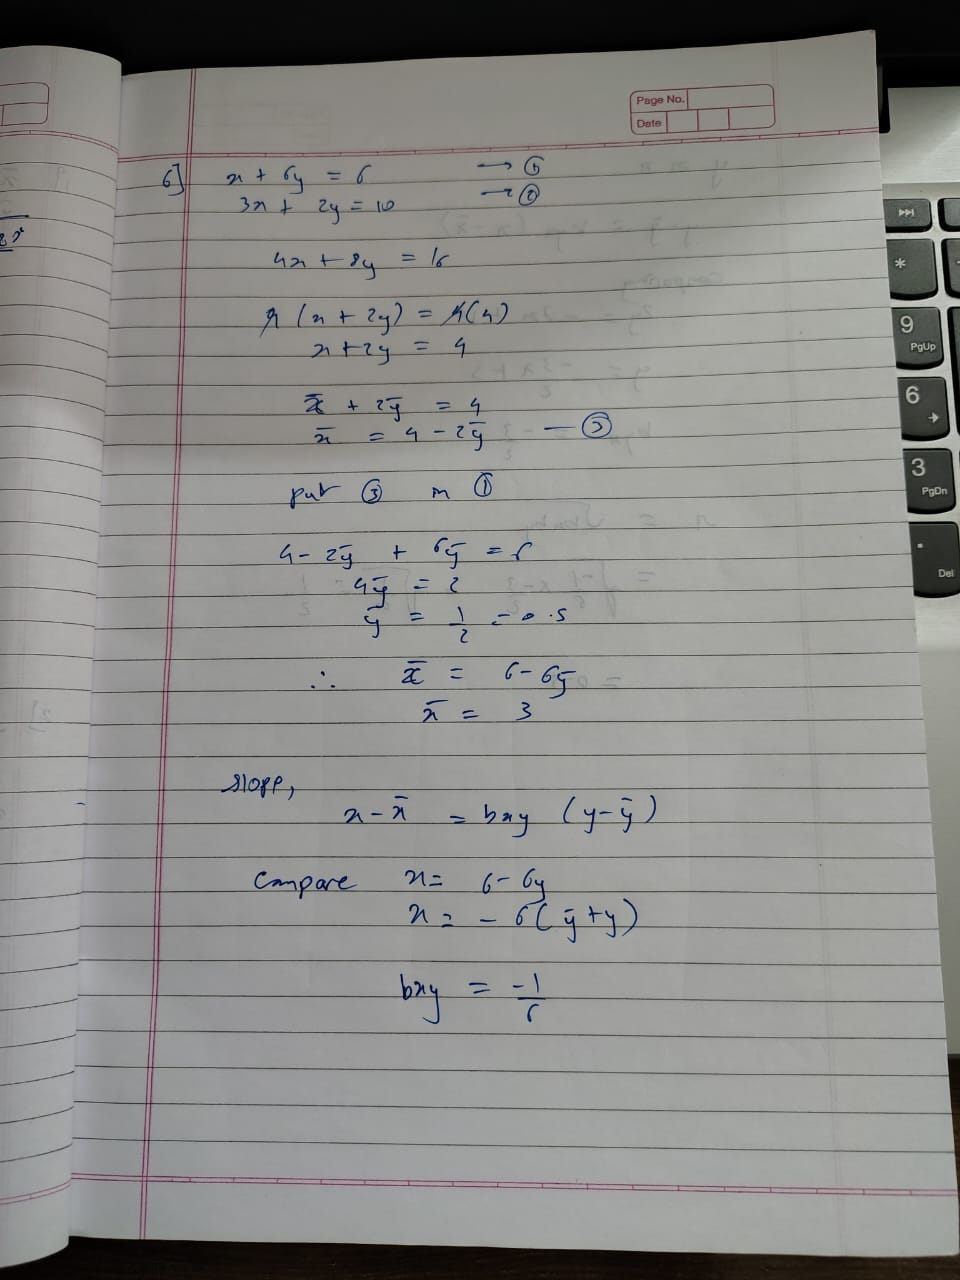 Page No.
Date
6] x + 6y = 6 → ①
3x + 2y = 10 → ②
4x + 8y = 16
4 (x + 2y) = 4(4)
x + 2y = 4
x̄ + 2ȳ = 4
x̄ = 4 - 2ȳ — ③
put ③ in ①
4 - 2ȳ + 6ȳ = 6
4ȳ = 2
ȳ = 1/2 = 0.5
∴ x̄ = 6 - 6ȳ
x̄ = 3
slope,
x - x̄ = bxy (y - ȳ)
Compare x = 6 - 6y
x = - 6(ȳ + y)
bxy = -1/6
*
9
PgUp
6
3
PgDn
.
Del